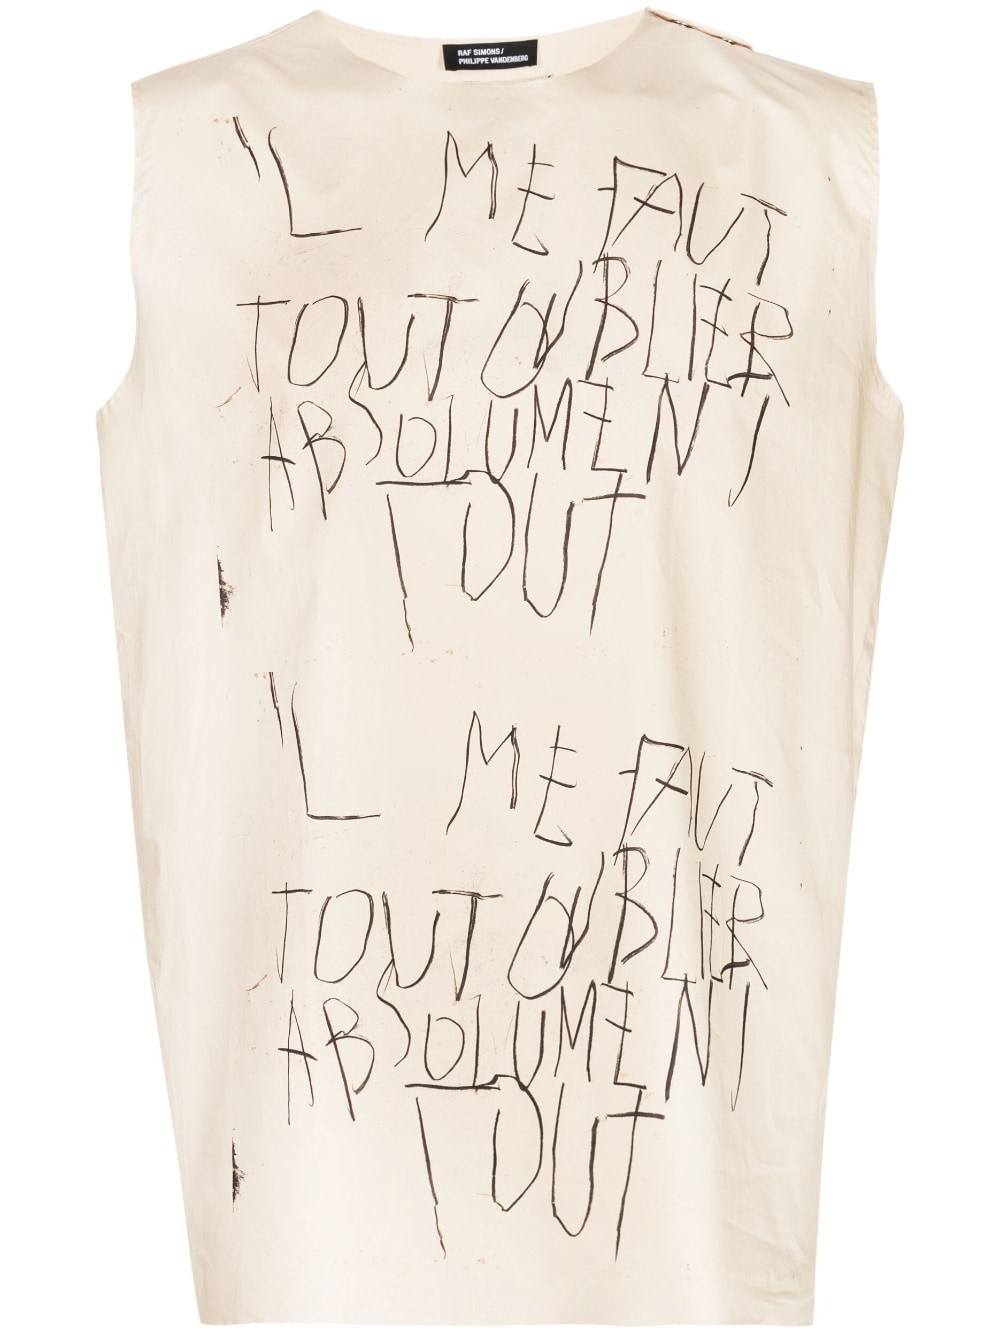 RAF SIMONS/
PHILIPPE VANDENBERG
IL ME FAUT
TOUT OUBLIER
ABSOLUMENT
TOUT
IL ME FAUT
TOUT OUBLIER
ABSOLUMENT
TOUT